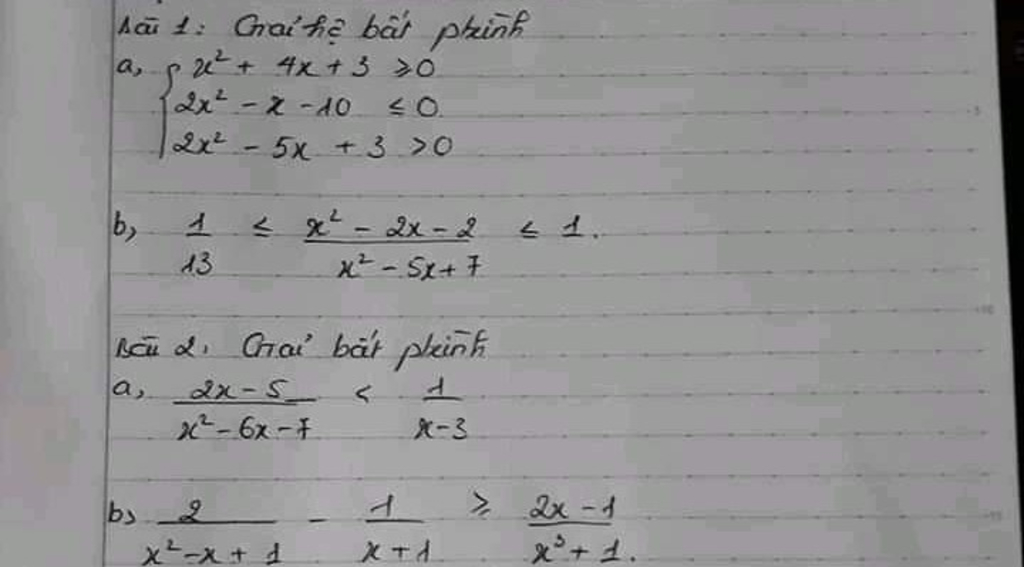 Bài 1: Giải hệ bất ptrình
a, { x² + 4x + 3 ≥ 0
2x² - x - 10 ≤ 0
2x² - 5x + 3 > 0
b, 1/13 ≤ (x² - 2x - 2)/(x² - 5x + 7) ≤ 1.
Bài 2. Giải bất ptrình
a, (2x - 5)/(x² - 6x - 7) < 1/(x - 3)
b, 2/(x² - x + 1) - 1/(x + 1) ≥ (2x - 1)/(x³ + 1).